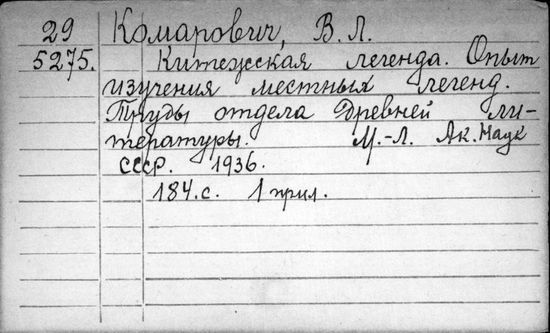 29 Комарович, В. Л.
5275. Китежская легенда. Опыт
изучения местных легенд.
Труды отдела Древней ли-
тературы. М.-Л. Ак. Наук
СССР. 1936.
184.с. 1 прил.